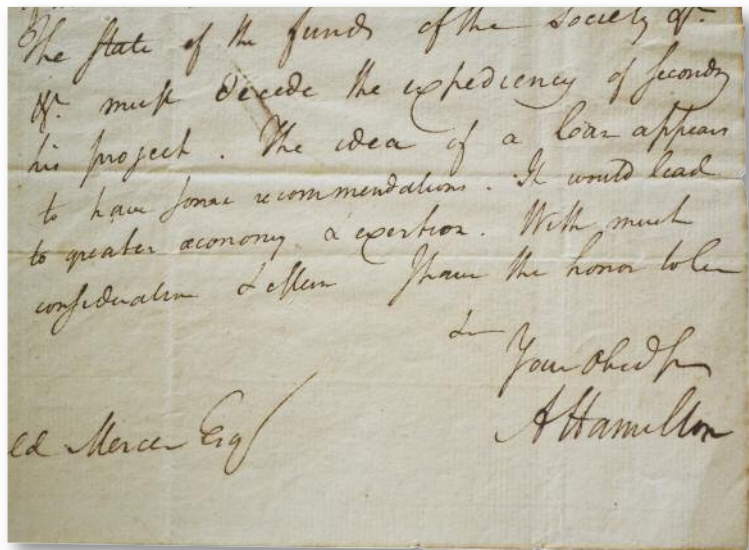 The State of the funds of the Society &c.
&c. must decide the expediency of seconding
his project. The idea of a loan appears
to have some recommendations. It would lead
to greater œconomy & exertion. With much
consideration & esteem I have the honor to be
Sir
Your Obed Ser
A Hamilton
ed Mercer Esq